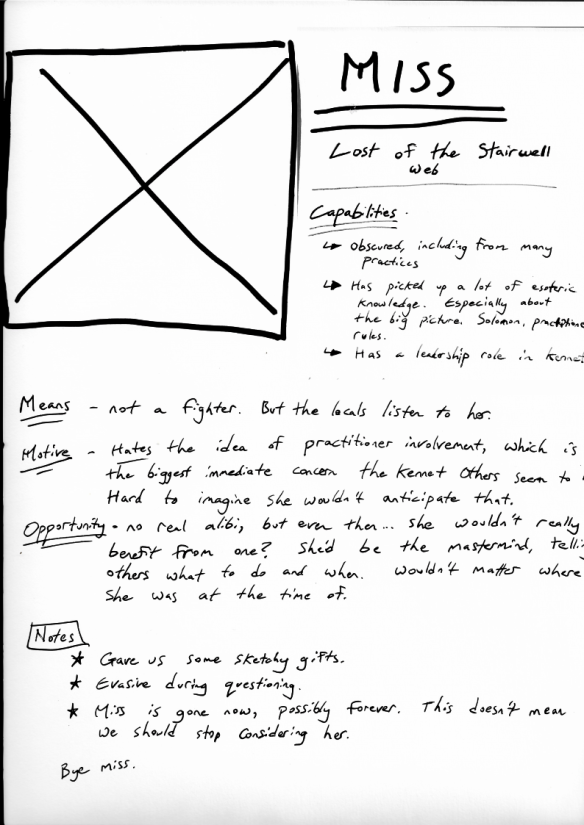 Miss
Lost of the Stairwell
web
Capabilities.
↳ Obscured, including from many
practices
↳ Has picked up a lot of esoteric
knowledge. Especially about
the big picture. Solomon, practitione
rules.
↳ Has a leadership role in Kennet
Means - not a fighter. But the locals listen to her.
Motive - Hates the idea of practitioner involvement, which is
the biggest immediate concern the Kennet Others seem to
Hard to imagine she wouldn't anticipate that.
Opportunity - no real alibi, but even then... she wouldn't really
benefit from one? She'd be the mastermind, telli
others what to do and when. Wouldn't matter where
she was at the time of.
Notes
★ Gave us some sketchy gifts.
★ Evasive during questioning.
★ Miss is gone now, possibly forever. This doesn't mean
we should stop considering her.
Bye miss.